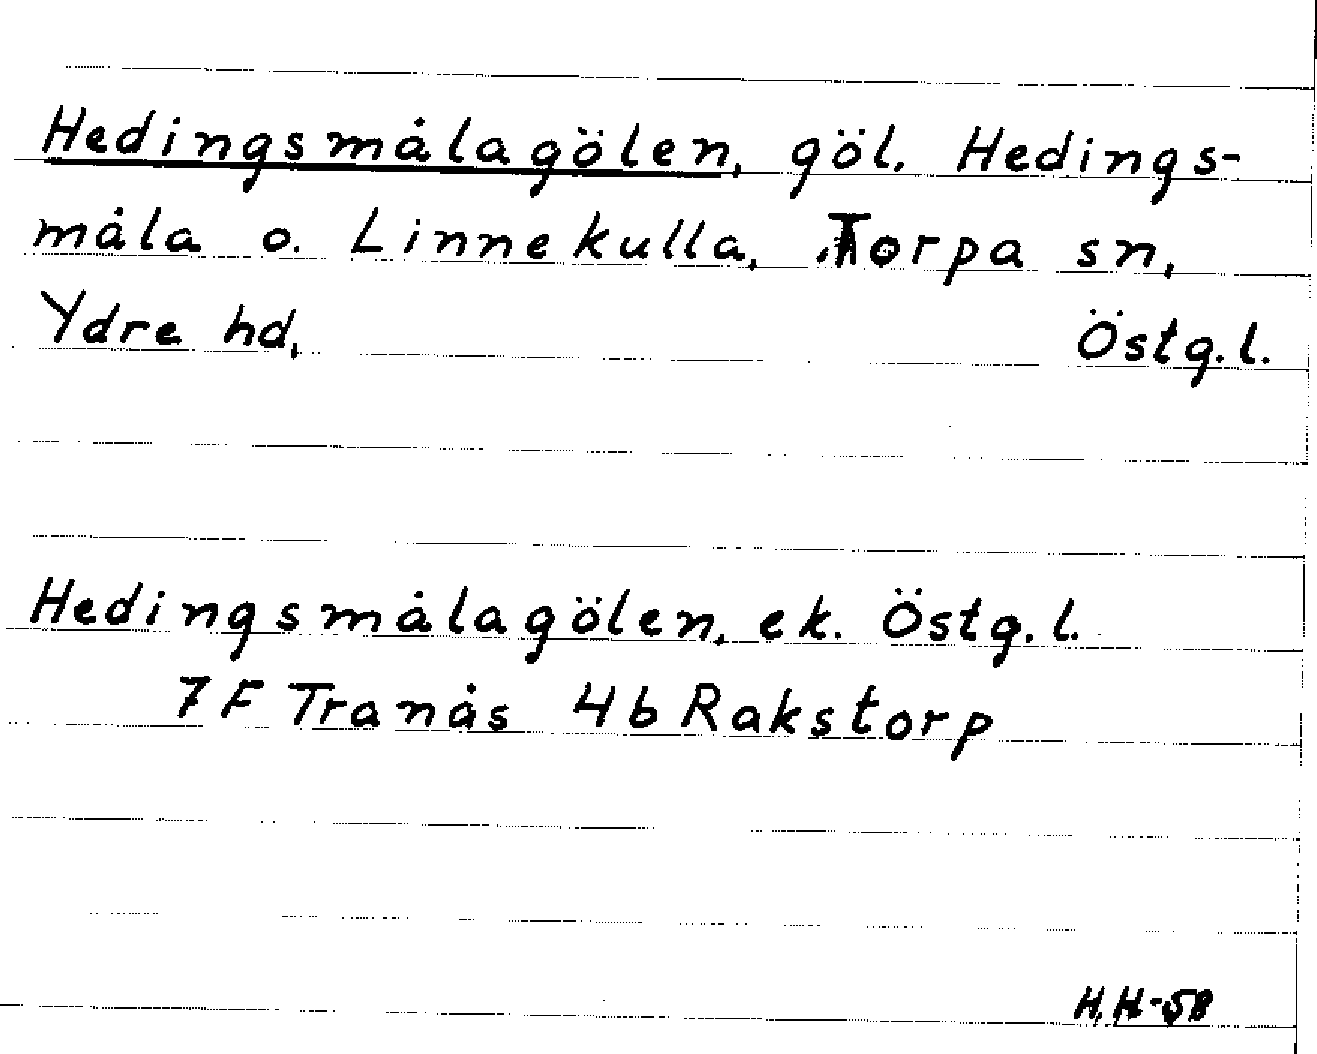 Hedingsmålagölen, göl. Hedings-
måla o. Linnekulla, Torpa sn,
Ydre hd, Östg.l.
Hedingsmålagölen, ek. Östg.l.
7F Tranås 4b Rakstorp
H.H-58